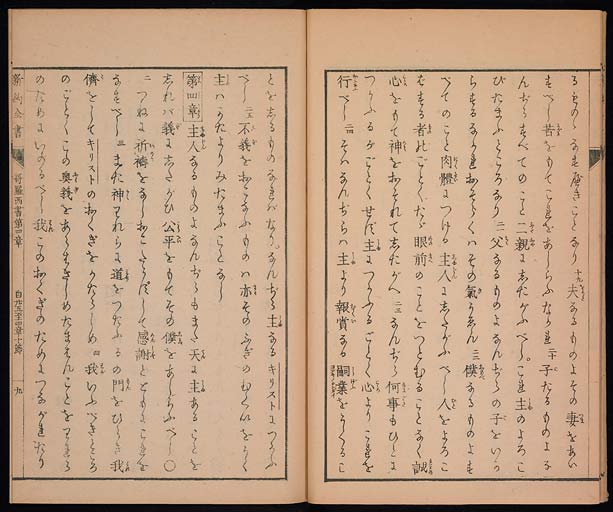 るものゝなすべきことなり 十九 夫なるものよその妻をあい
すべし苦をもてこれをあしらふなかれ 二十 子たるものよな
んぢらすべてのこと二親にしたがふべしこれ主のよろこ
びたまふところなり 二一 父なるものよなんぢらの子をいか
らするなかれおそらくハその氣うせん 二二 僕なるものよす
べてのこと肉體につける主人にしたがふべし人をよろこ
ばする者のごとくたゞ眼前のことをつとむることなく誠
心をもて神をおそれてしたがへ 二三 なんぢら何事もひとに
つかふるがごとくせず主につかふるごとく心よりこれを
行べし 二四 そハなんぢらハ主より報賞なる嗣業をうくるこ
とをしるものなればなりなんぢら主なるキリストにつかふ
べし 二五 不義をおこなふものハ亦そのふぎのむくいをうく
主ハかたよりみたまふことなし
第四章 主人なるものよなんぢらもまた天に主あることを
しれバ義にしたがひ公平をもてその僕をあしらふべし〇
二 つねに祈祷をなしおこたらずして感謝とともにこれを
なすべし 三 また神われらに道をつたふるの門をひらき我
儕をしてキリストのおくぎをかたらしめ 四 我いふべきところ
のごとくこの奥義をあらはさしめたまはんことをわれら
のためにいのるべし我このおくぎのためにつながれたり
新約全書 哥羅西書第四章 九